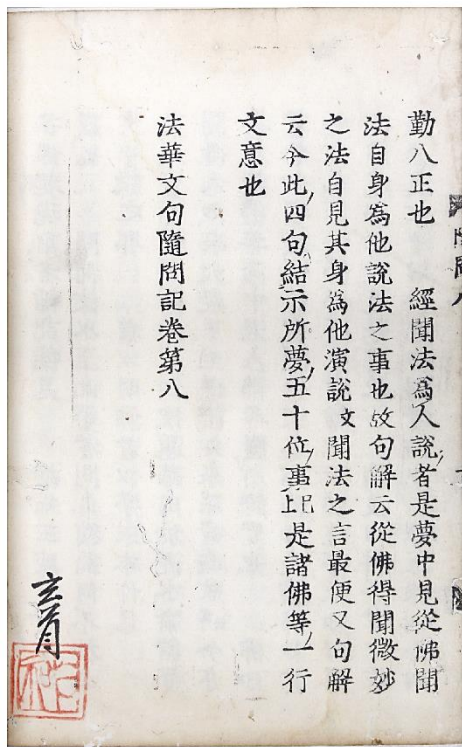 勤八正也　經聞法為人說者是夢中見從佛聞
法自身為他說法之事也故句解云從佛得聞微妙
之法自見其身為他演說文聞法之言最便又句解
云今此四句結示所夢五十位事比是諸佛等一行
文意也
法華文句隨問記卷第八